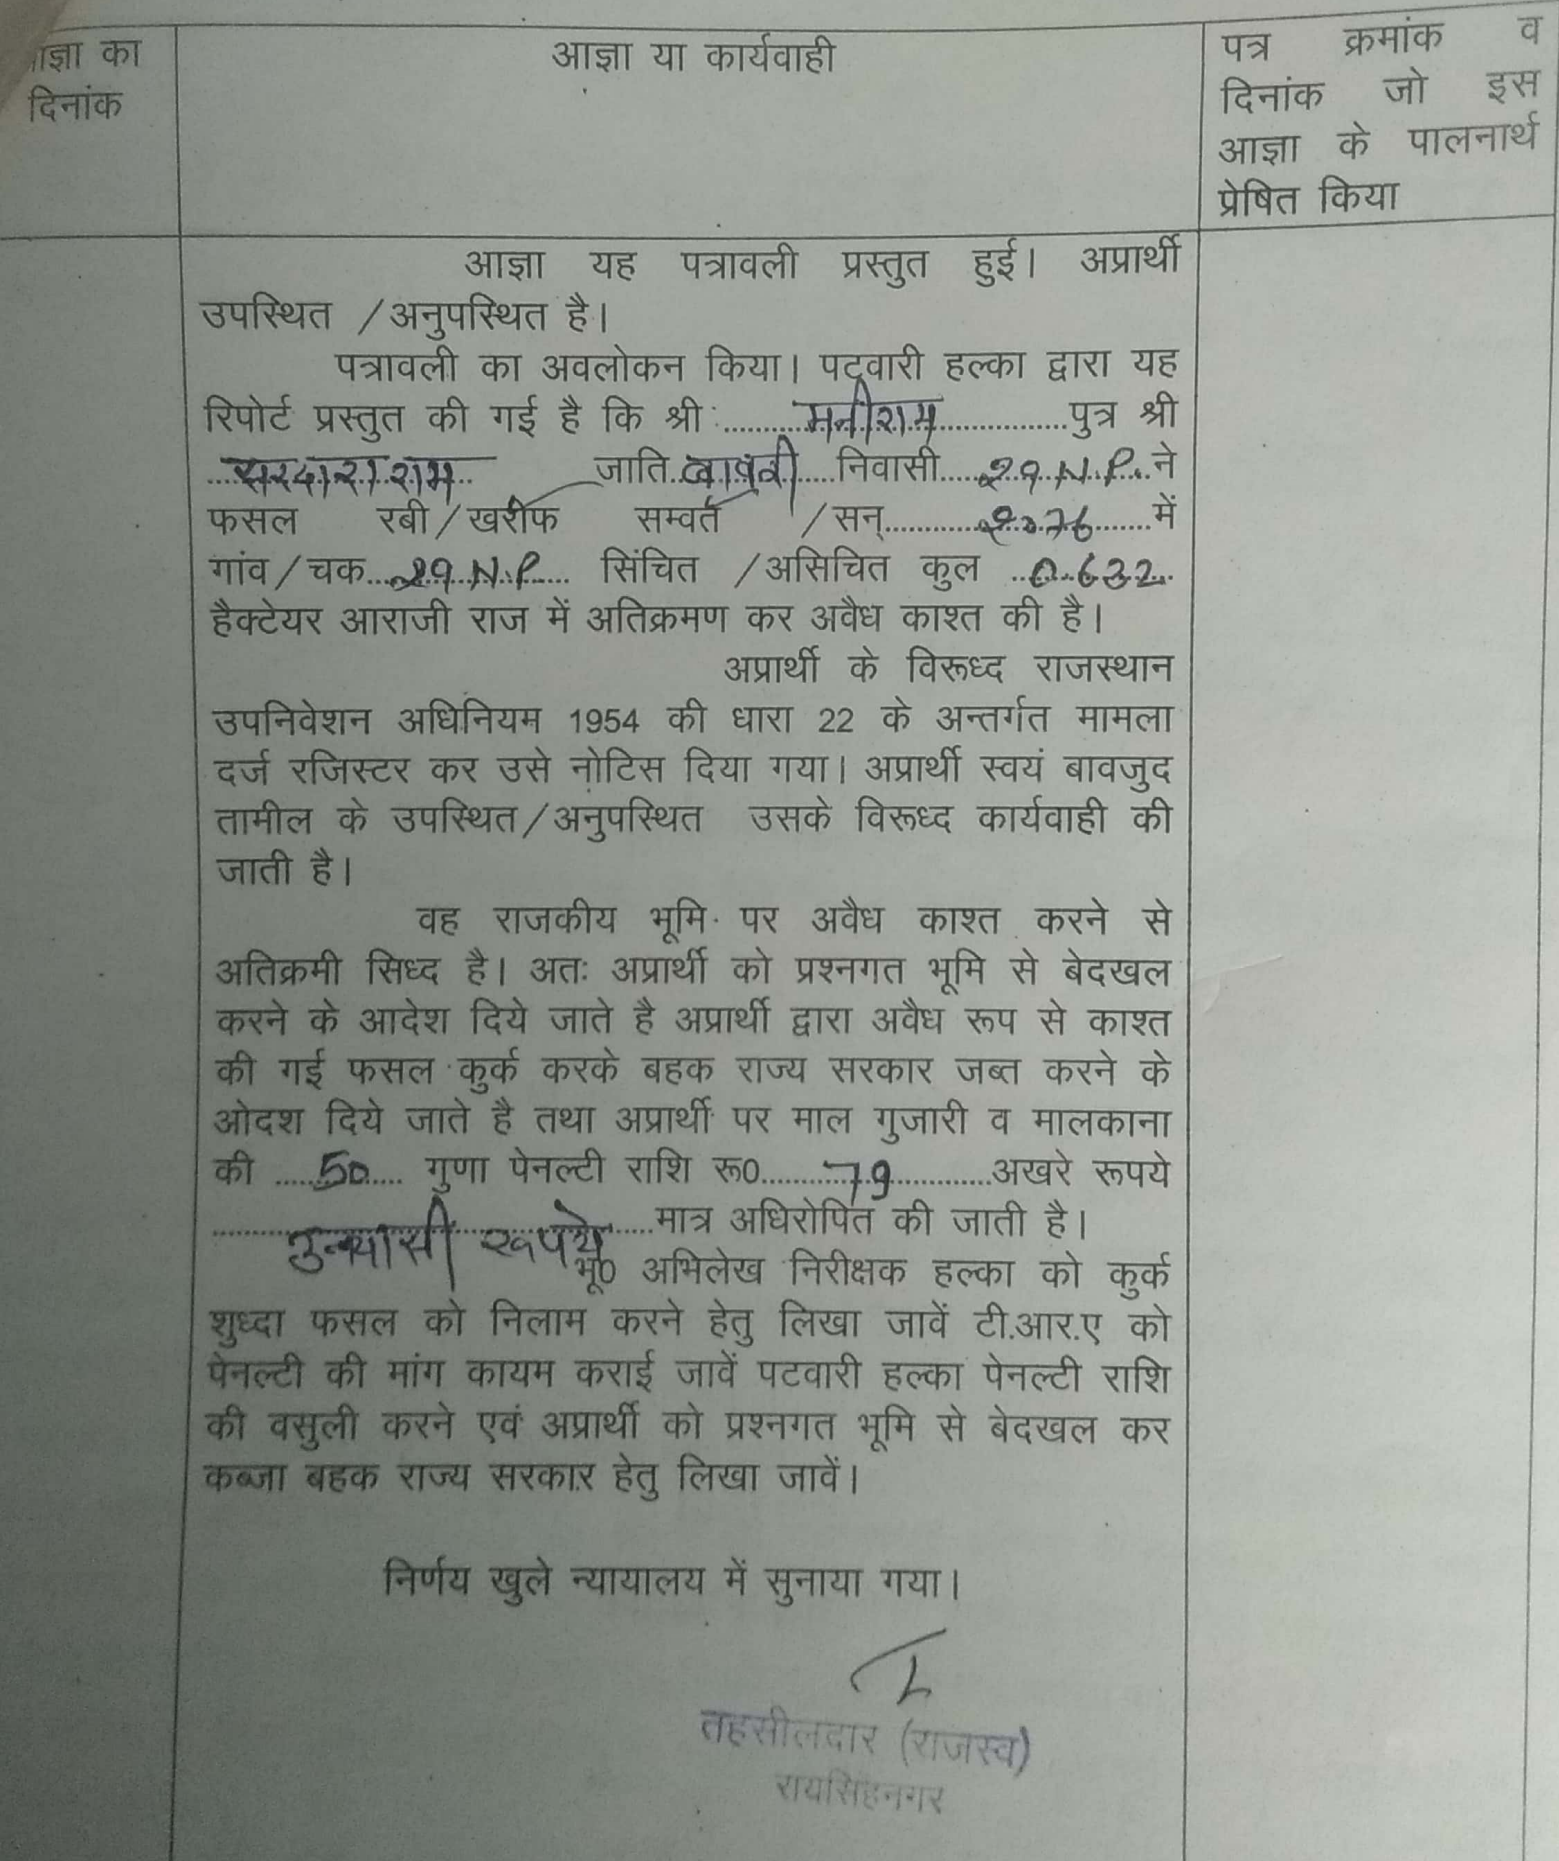 आज्ञा का
दिनांक
आज्ञा या कार्यवाही
पत्र क्रमांक व
दिनांक जो इस
आज्ञा के पालनार्थ
प्रेषित किया
आज्ञा यह पत्रावली प्रस्तुत हुई। अप्रार्थी
उपस्थित /अनुपस्थित है।
पत्रावली का अवलोकन किया। पटवारी हल्का द्वारा यह
रिपोर्ट प्रस्तुत की गई है कि श्री ......मनीराम......पुत्र श्री
...सरदाराराम... जाति..बावरी...निवासी....29 N.P...ने
फसल रबी/खरीफ सम्वर्त /सन्......2076......में
गांव/चक...29 N.P.... सिंचित /असिचित कुल ...0.632...
हैक्टेयर आराजी राज में अतिक्रमण कर अवैध काश्त की है।
अप्रार्थी के विरूध्द राजस्थान
उपनिवेशन अधिनियम 1954 की धारा 22 के अन्तर्गत मामला
दर्ज रजिस्टर कर उसे नोटिस दिया गया। अप्रार्थी स्वयं बावजुद
तामील के उपस्थित/अनुपस्थित उसके विरूध्द कार्यवाही की
जाती है।
वह राजकीय भूमि पर अवैध काश्त करने से
अतिक्रमी सिध्द है। अतः अप्रार्थी को प्रश्नगत भूमि से बेदखल
करने के आदेश दिये जाते है अप्रार्थी द्वारा अवैध रूप से काश्त
की गई फसल कुर्क करके बहक राज्य सरकार जब्त करने के
ओदश दिये जाते है तथा अप्रार्थी पर माल गुजारी व मालकाना
की .....50..... गुणा पेनल्टी राशि रू0......79......अखरे रूपये
......उन्यासी रूपये......मात्र अधिरोपित की जाती है।
भू0 अभिलेख निरीक्षक हल्का को कुर्क
शुध्दा फसल को निलाम करने हेतु लिखा जावें टी.आर.ए को
पेनल्टी की मांग कायम कराई जावें पटवारी हल्का पेनल्टी राशि
की वसुली करने एवं अप्रार्थी को प्रश्नगत भूमि से बेदखल कर
कब्जा बहक राज्य सरकार हेतु लिखा जावें।
निर्णय खुले न्यायालय में सुनाया गया।
तहसीलदार (राजस्व)
रायसिंहनगर